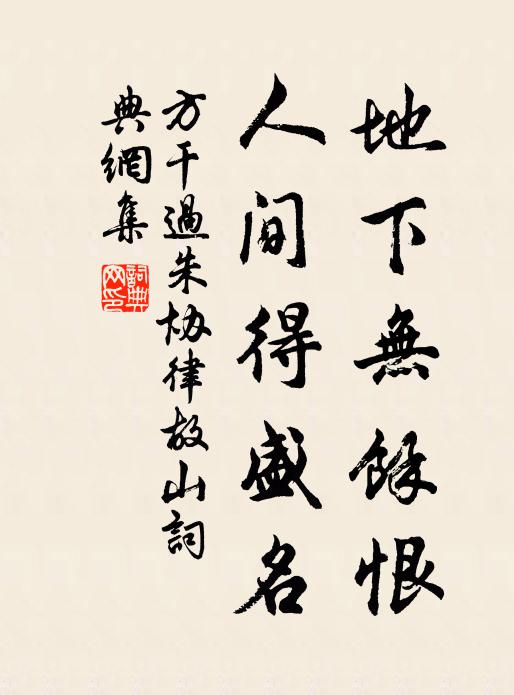 地下無餘恨
人間得盛名
方干過朱協律故山詞
典網集
詞典網印